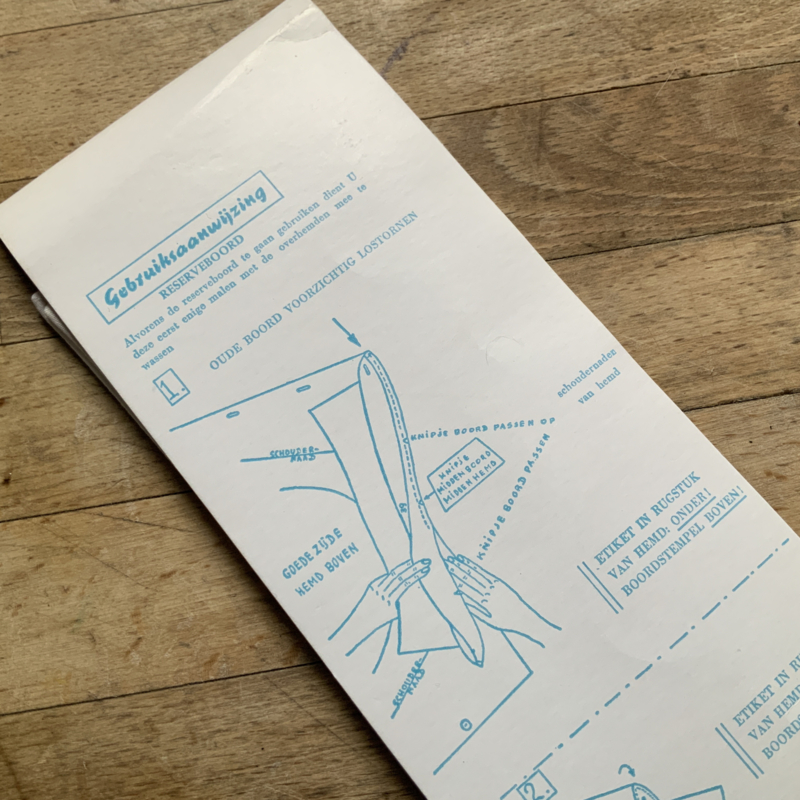 Gebruiksaanwijzing
RESERVEBOORD
Alvorens de reserveboord te gaan gebruiken dient U
deze eerst enige malen met de overhemden mee te
wassen
1.
OUDE BOORD VOORZICHTIG LOSTORNEN
schoudernaden
van hemd
KNIPJE BOORD PASSEN OP
SCHOUDER-
NAAD
KNIPJE
MIDDEN BOORD
MIDDEN HEMD
KNIPJE BOORD PASSEN
39
GOEDE ZIJDE
HEMD BOVEN
ETIKET IN RUGSTUK
VAN HEMD: ONDER!
BOORDSTEMPEL BOVEN!
SCHOUDER-
NAAD
ETIKET IN
VAN
2.